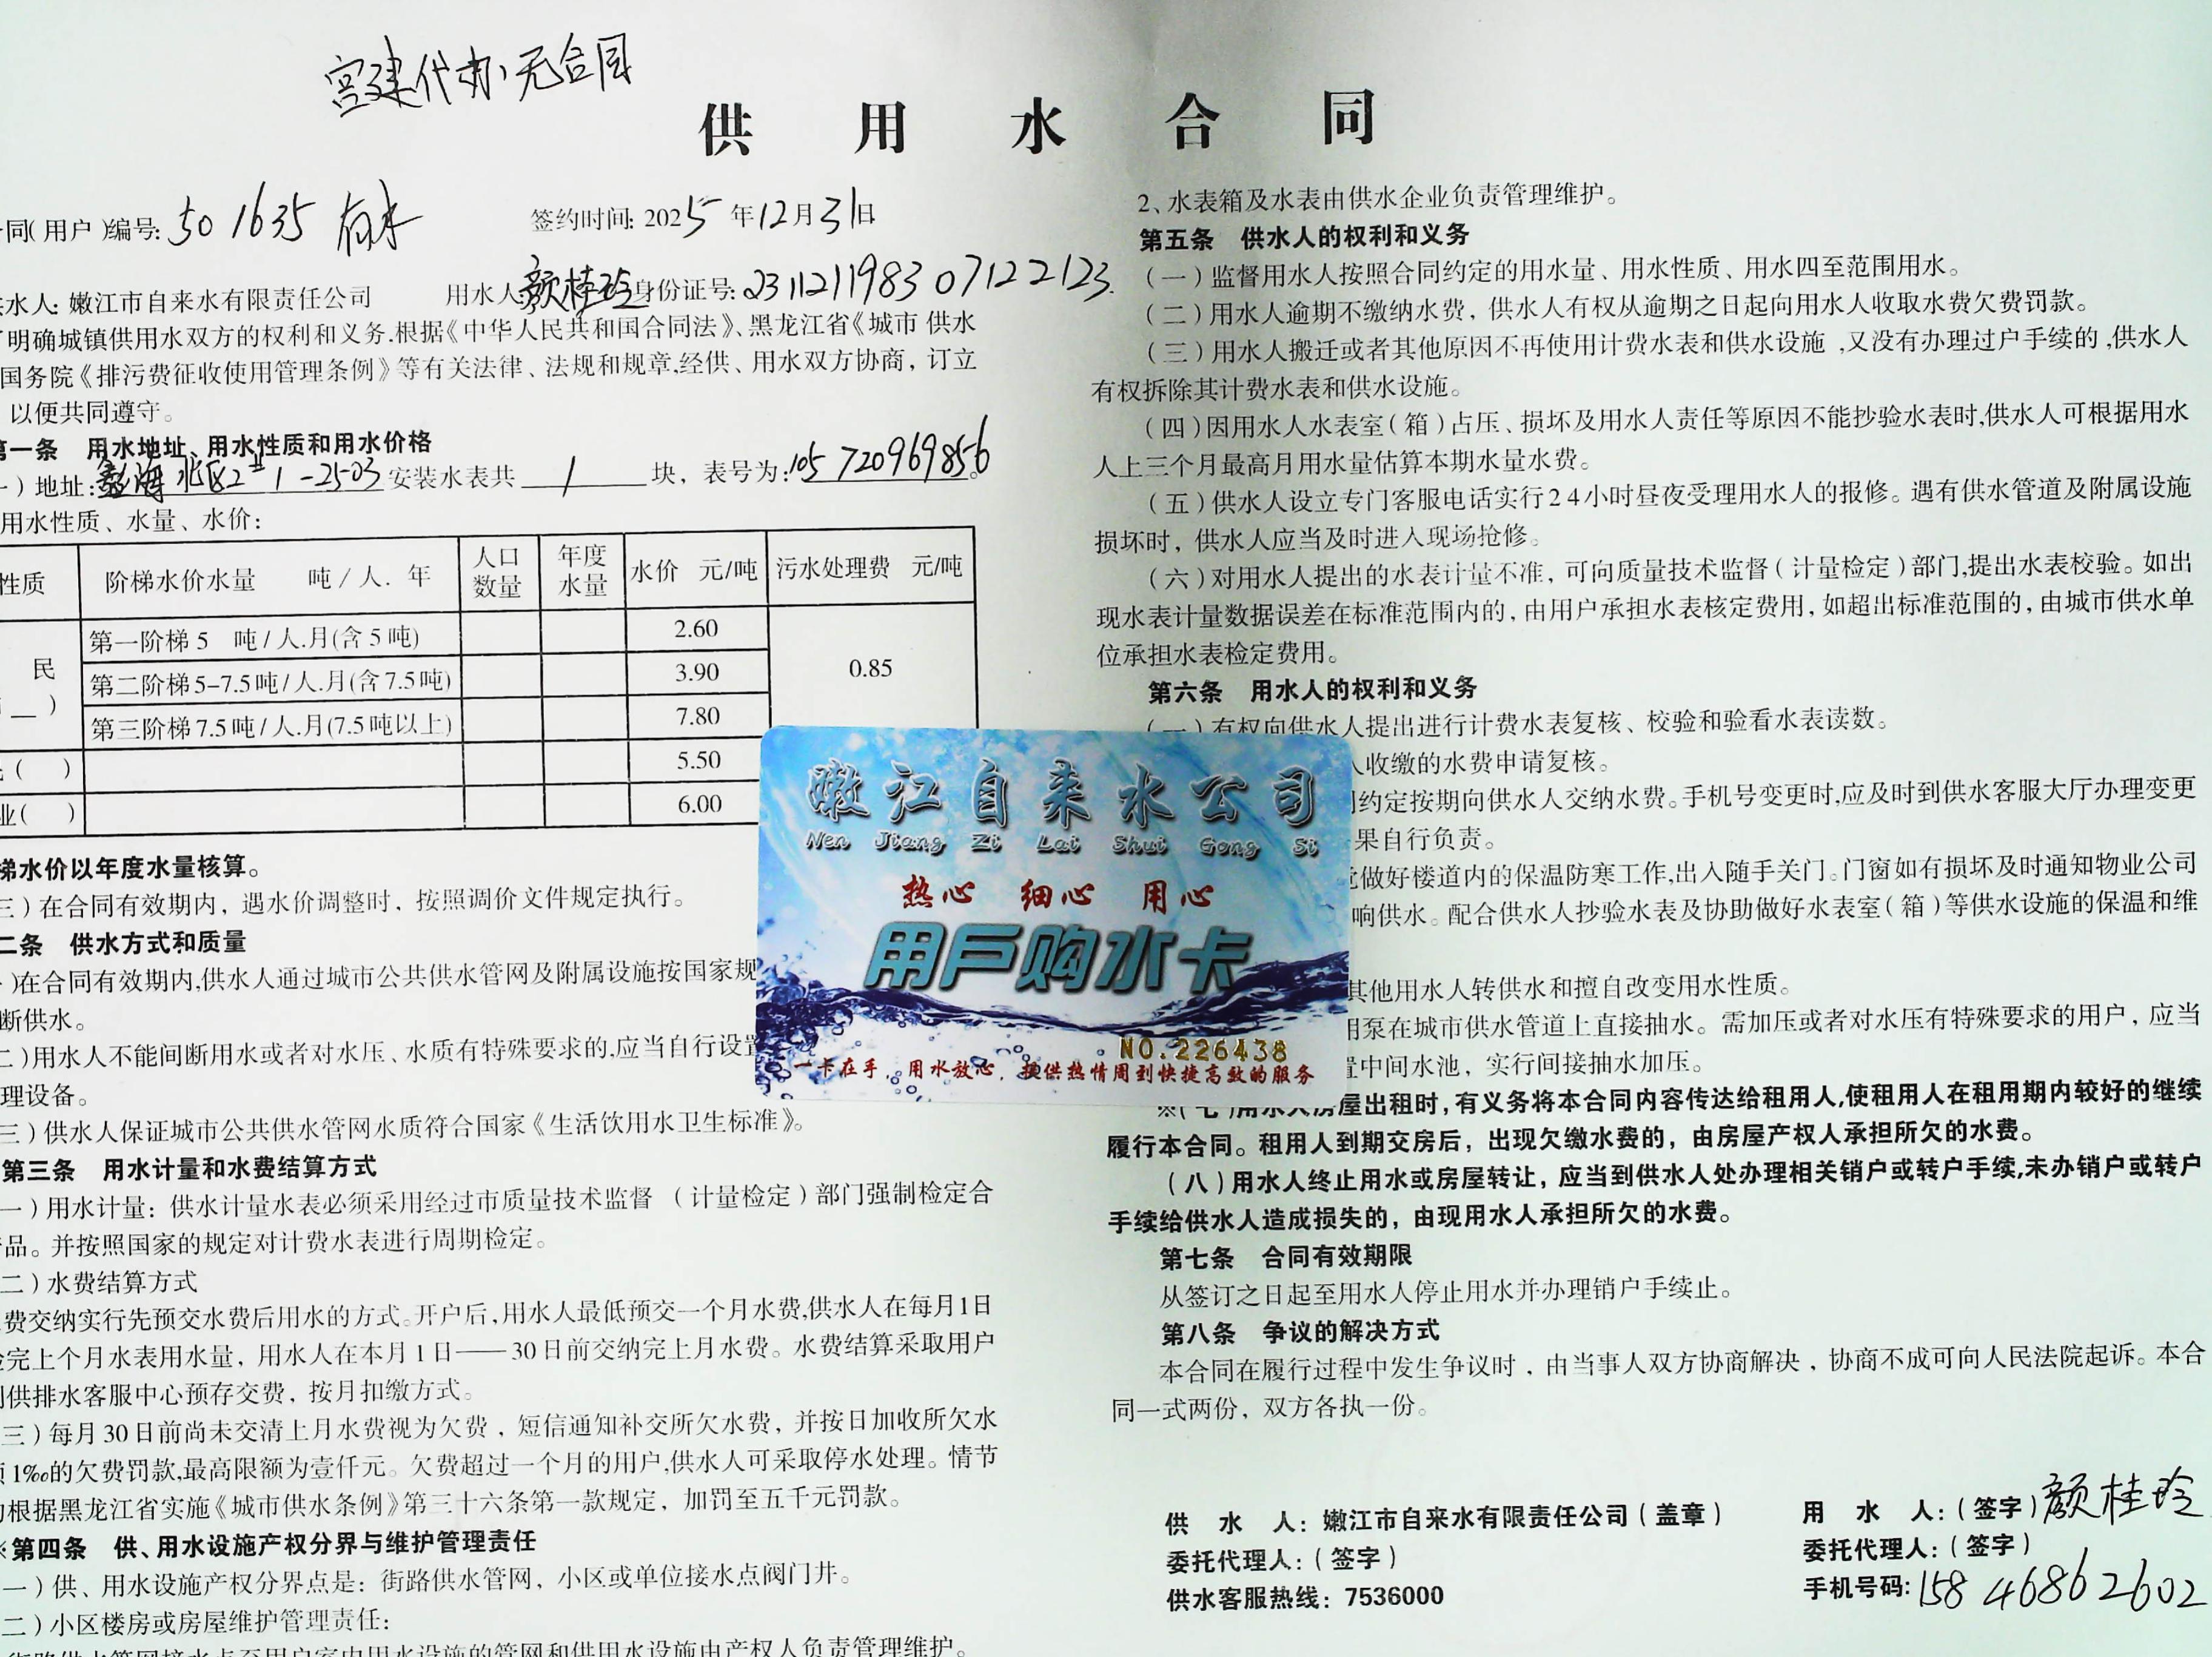 宫建代办无合同
供 用 水 合 同
同(用户)编号: 501635 有水
签约时间: 2025年12月31日
水人: 嫩江市自来水有限责任公司 用水人: 颜桂玲 身份证号: 231121198307122123.
明确城镇供用水双方的权利和义务.根据《中华人民共和国合同法》、黑龙江省《城市 供水
国务院《排污费征收使用管理条例》等有关法律、法规和规章,经供、用水双方协商，订立
以便共同遵守。
第一条 用水地址、用水性质和用水价格
)地址: 北区2# 1-2503 安装水表共 1 块，表号为: 105 720969856。
用水性质、水量、水价:
性质 阶梯水价水量 吨/人.年 人口数量 年度水量 水价 元/吨 污水处理费 元/吨
民
第一阶梯 5 吨/人.月(含 5 吨) 2.60 0.85
第二阶梯 5-7.5吨/人.月(含7.5吨) 3.90
第三阶梯 7.5吨/人.月(7.5吨以上) 7.80
( ) 5.50
业( ) 6.00
梯水价以年度水量核算。
三)在合同有效期内，遇水价调整时，按照调价文件规定执行。
二条 供水方式和质量
)在合同有效期内,供水人通过城市公共供水管网及附属设施按国家规
断供水。
二)用水人不能间断用水或者对水压、水质有特殊要求的,应当自行设置
理设备。
三)供水人保证城市公共供水管网水质符合国家《生活饮用水卫生标准》。
第三条 用水计量和水费结算方式
一)用水计量：供水计量水表必须采用经过市质量技术监督 (计量检定)部门强制检定合
品。并按照国家的规定对计费水表进行周期检定。
二)水费结算方式
费交纳实行先预交水费后用水的方式。开户后,用水人最低预交一个月水费,供水人在每月1日
完上个月水表用水量，用水人在本月1日——30日前交纳完上月水费。水费结算采取用户
供排水客服中心预存交费，按月扣缴方式。
三)每月30日前尚未交清上月水费视为欠费，短信通知补交所欠水费，并按日加收所欠水
1‰的欠费罚款,最高限额为壹仟元。欠费超过一个月的用户,供水人可采取停水处理。情节
根据黑龙江省实施《城市供水条例》第三十六条第一款规定，加罚至五千元罚款。
※第四条 供、用水设施产权分界与维护管理责任
一)供、用水设施产权分界点是：街路供水管网，小区或单位接水点阀门井。
二)小区楼房或房屋维护管理责任:
街路供水管网接水点至用户室内用水设施的管网和供用水设施由产权人负责管理维护。
2、水表箱及水表由供水企业负责管理维护。
第五条 供水人的权利和义务
(一)监督用水人按照合同约定的用水量、用水性质、用水四至范围用水。
(二)用水人逾期不缴纳水费，供水人有权从逾期之日起向用水人收取水费欠费罚款。
(三)用水人搬迁或者其他原因不再使用计费水表和供水设施,又没有办理过户手续的,供水人
有权拆除其计费水表和供水设施。
(四)因用水人水表室(箱)占压、损坏及用水人责任等原因不能抄验水表时,供水人可根据用水
人上三个月最高月用水量估算本期水量水费。
(五)供水人设立专门客服电话实行24小时昼夜受理用水人的报修。遇有供水管道及附属设施
损坏时，供水人应当及时进入现场抢修。
(六)对用水人提出的水表计量不准，可向质量技术监督(计量检定)部门,提出水表校验。如出
现水表计量数据误差在标准范围内的，由用户承担水表核定费用，如超出标准范围的，由城市供水单
位承担水表检定费用。
第六条 用水人的权利和义务
(一)有权向供水人提出进行计费水表复核、校验和验看水表读数。
人收缴的水费申请复核。
约定按期向供水人交纳水费。手机号变更时,应及时到供水客服大厅办理变更
果自行负责。
做好楼道内的保温防寒工作,出入随手关门。门窗如有损坏及时通知物业公司
响供水。配合供水人抄验水表及协助做好水表室(箱)等供水设施的保温和维
其他用水人转供水和擅自改变用水性质。
用泵在城市供水管道上直接抽水。需加压或者对水压有特殊要求的用户，应当
置中间水池，实行间接抽水加压。
※(七)用水人房屋出租时,有义务将本合同内容传达给租用人,使租用人在租用期内较好的继续
履行本合同。租用人到期交房后，出现欠缴水费的，由房屋产权人承担所欠的水费。
(八)用水人终止用水或房屋转让，应当到供水人处办理相关销户或转户手续,未办销户或转户
手续给供水人造成损失的，由现用水人承担所欠的水费。
第七条 合同有效期限
从签订之日起至用水人停止用水并办理销户手续止。
第八条 争议的解决方式
本合同在履行过程中发生争议时，由当事人双方协商解决，协商不成可向人民法院起诉。本合
同一式两份，双方各执一份。
供 水 人：嫩江市自来水有限责任公司(盖章)
委托代理人：(签字)
供水客服热线：7536000
用 水 人：(签字)颜桂玲
委托代理人：(签字)
手机号码: 15846862602
嫩江自来水公司
Nen Jiang Zi Lai Shui Gong Si
热心 细心 用心
用户购水卡
NO.226438
一卡在手，用水放心，提供热情周到快捷高效的服务